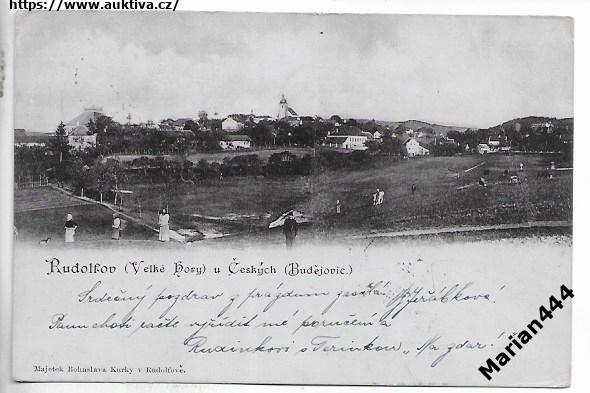 https://www.auktiva.cz/
Rudolfov (Velké Hory) u Českých (Budějovic.)
Srdečný pozdrav z prázdnin zasílá Jeřábková!
Panu choti račte vyřídit mé poručení a
Rudinkovi s Terinkou „Na zdar!"
Majetek Bohuslava Kurky v Rudolfově.
Marian444